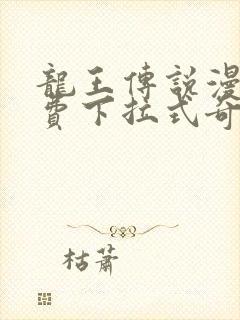 龍王傳說漫
費下拉式奇
枯蕭